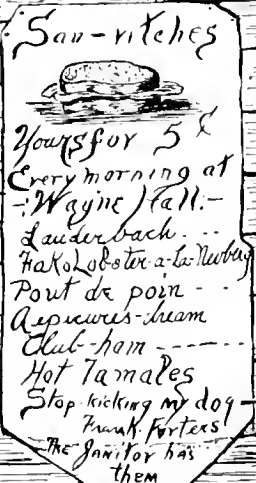 San-vitches
Yours for 5 ¢
Every morning at
-:Wayne Hall:-
Lauderbach. - -
Hako Lobster-a-La-Newberg
Pout de poin - - -
Aepicures-dream
Club-ham - - - - - -
Hot Tamales
Stop-kicking my dog -
Frank-furters
-The Janitor has
them